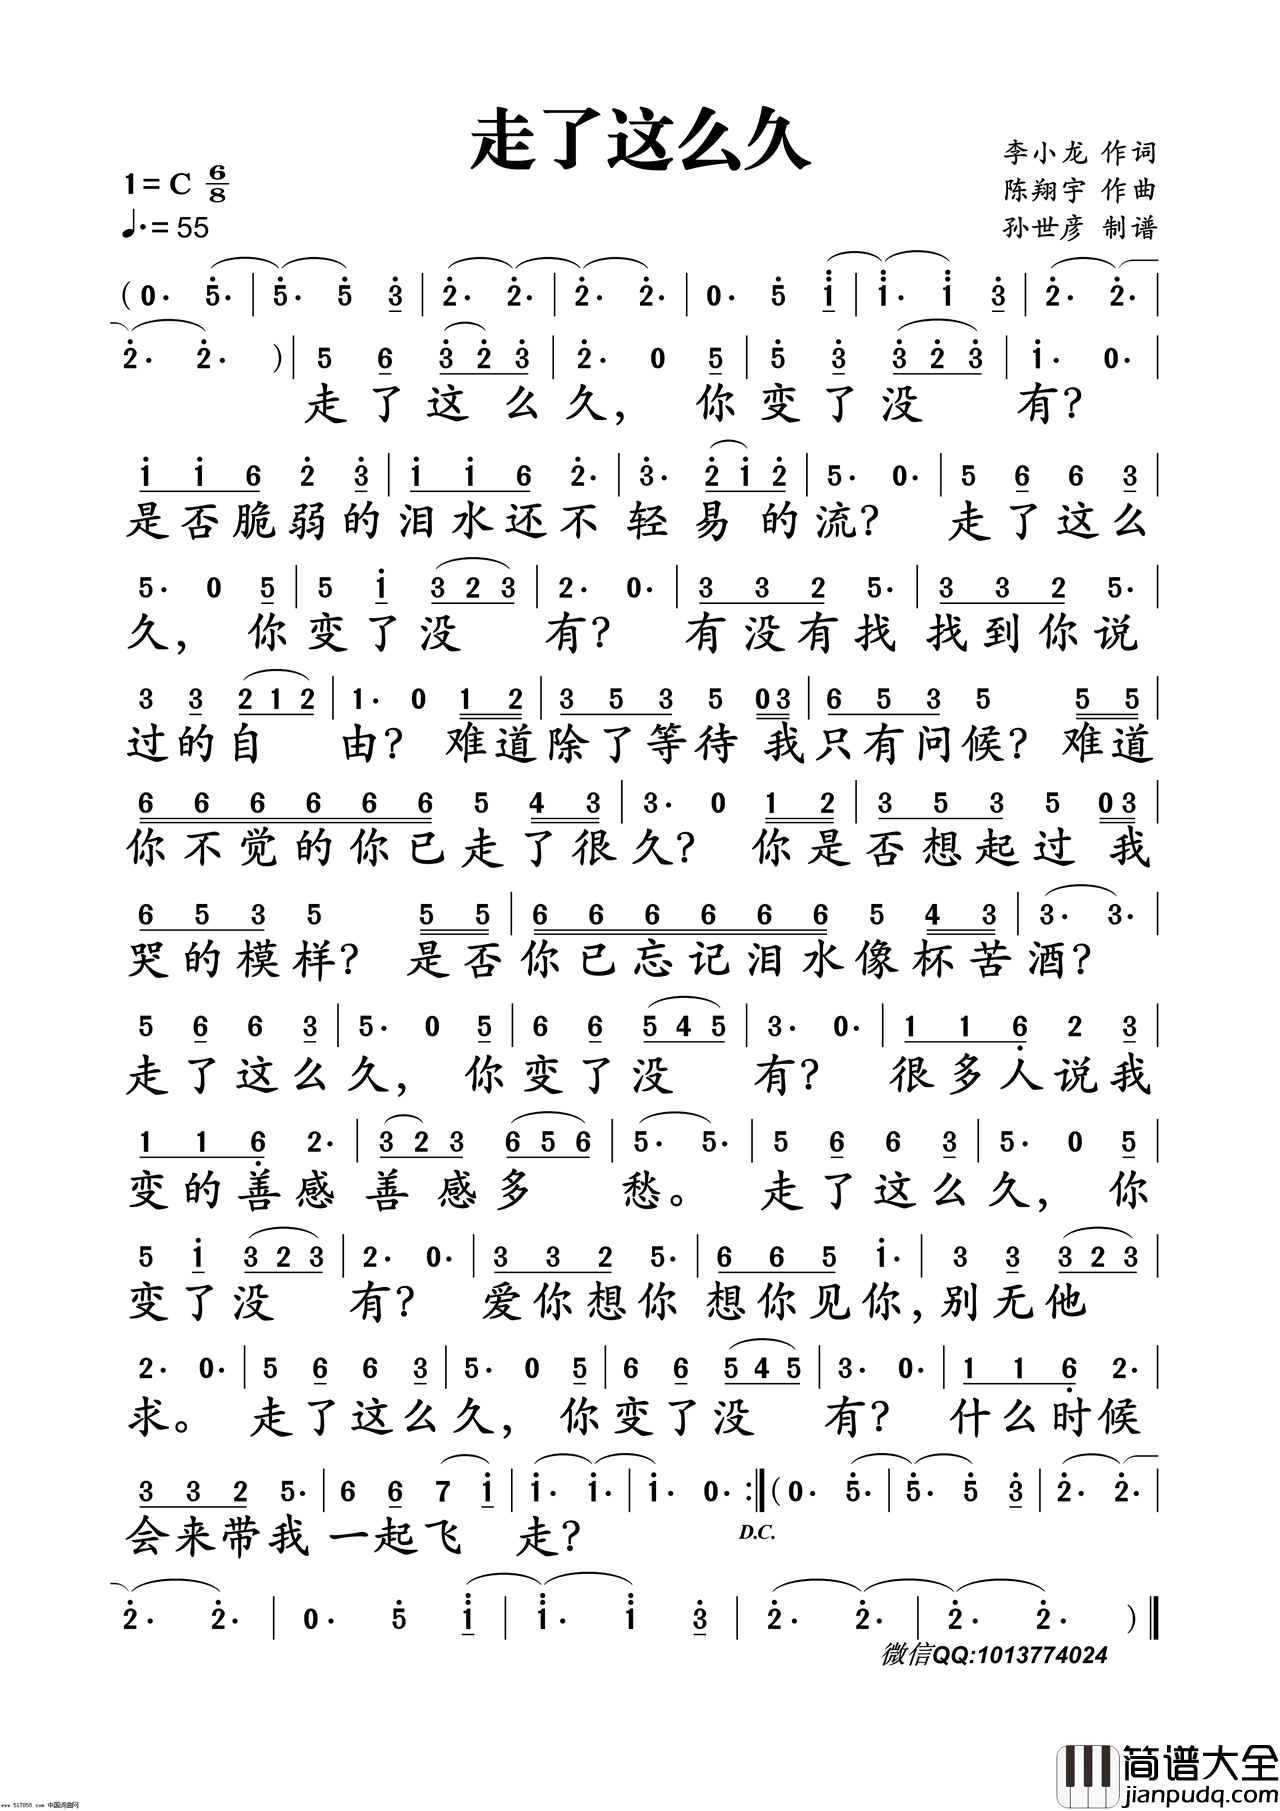 走了这么久
李小龙 作词
1=C 6/8
陈翔宇 作曲
♩.=55
孙世彦 制谱
(0· 5·|5· 5 3|2· 2·|2· 2·|0· 5 1|1· 1 3|2· 2·|
2· 2· )|5 6 3 2 3|2· 0 5|5 3 3 2 3|1· 0·|
走了这么久，你变了没有？
1 1 6 2 3|1 1 6 2·|3· 2 1 2|5· 0·|5 6 6 3|
是否脆弱的泪水还不轻易的流？走了这么
5· 0 5|5 1 3 2 3|2· 0·|3 3 2 5·|3 3 2 5·|
久，你变了没有？有没有找找到你说
3 3 2 1 2|1· 0 1 2|3 5 3 5 0 3|6 5 3 5 5 5|
过的自由？难道除了等待我只有问候？难道
6 6 6 6 6 6 5 4 3|3· 0 1 2|3 5 3 5 0 3|
你不觉的你已走了很久？你是否想起过我
6 5 3 5 5 5|6 6 6 6 6 6 5 4 3|3· 3·|
哭的模样？是否你已忘记泪水像杯苦酒？
5 6 6 3|5· 0 5|6 6 5 4 5|3· 0·|1 1 6 2 3|
走了这么久，你变了没有？很多人说我
1 1 6 2·|3 2 3 6 5 6|5· 5·|5 6 6 3|5· 0 5|
变的善感善感多愁。走了这么久，你
5 1 3 2 3|2· 0·|3 3 2 5·|6 6 5 1·|3 3 3 2 3|
变了没有？爱你想你想你见你，别无他
2· 0·|5 6 6 3|5· 0 5|6 6 5 4 5|3· 0·|1 1 6 2·|
求。走了这么久，你变了没有？什么时候
3 3 2 5·|6 6 7 1|1· 1·|1· 0· :‖(0· 5·|5· 5 3|2· 2·|
会来带我一起飞走？
D.C.
2· 2·|0· 5 1|1· 1 3|2· 2·|2· 2· )‖
微信QQ:1013774024
简谱大全
jianpudq.com
www.517858.com 中国词曲网